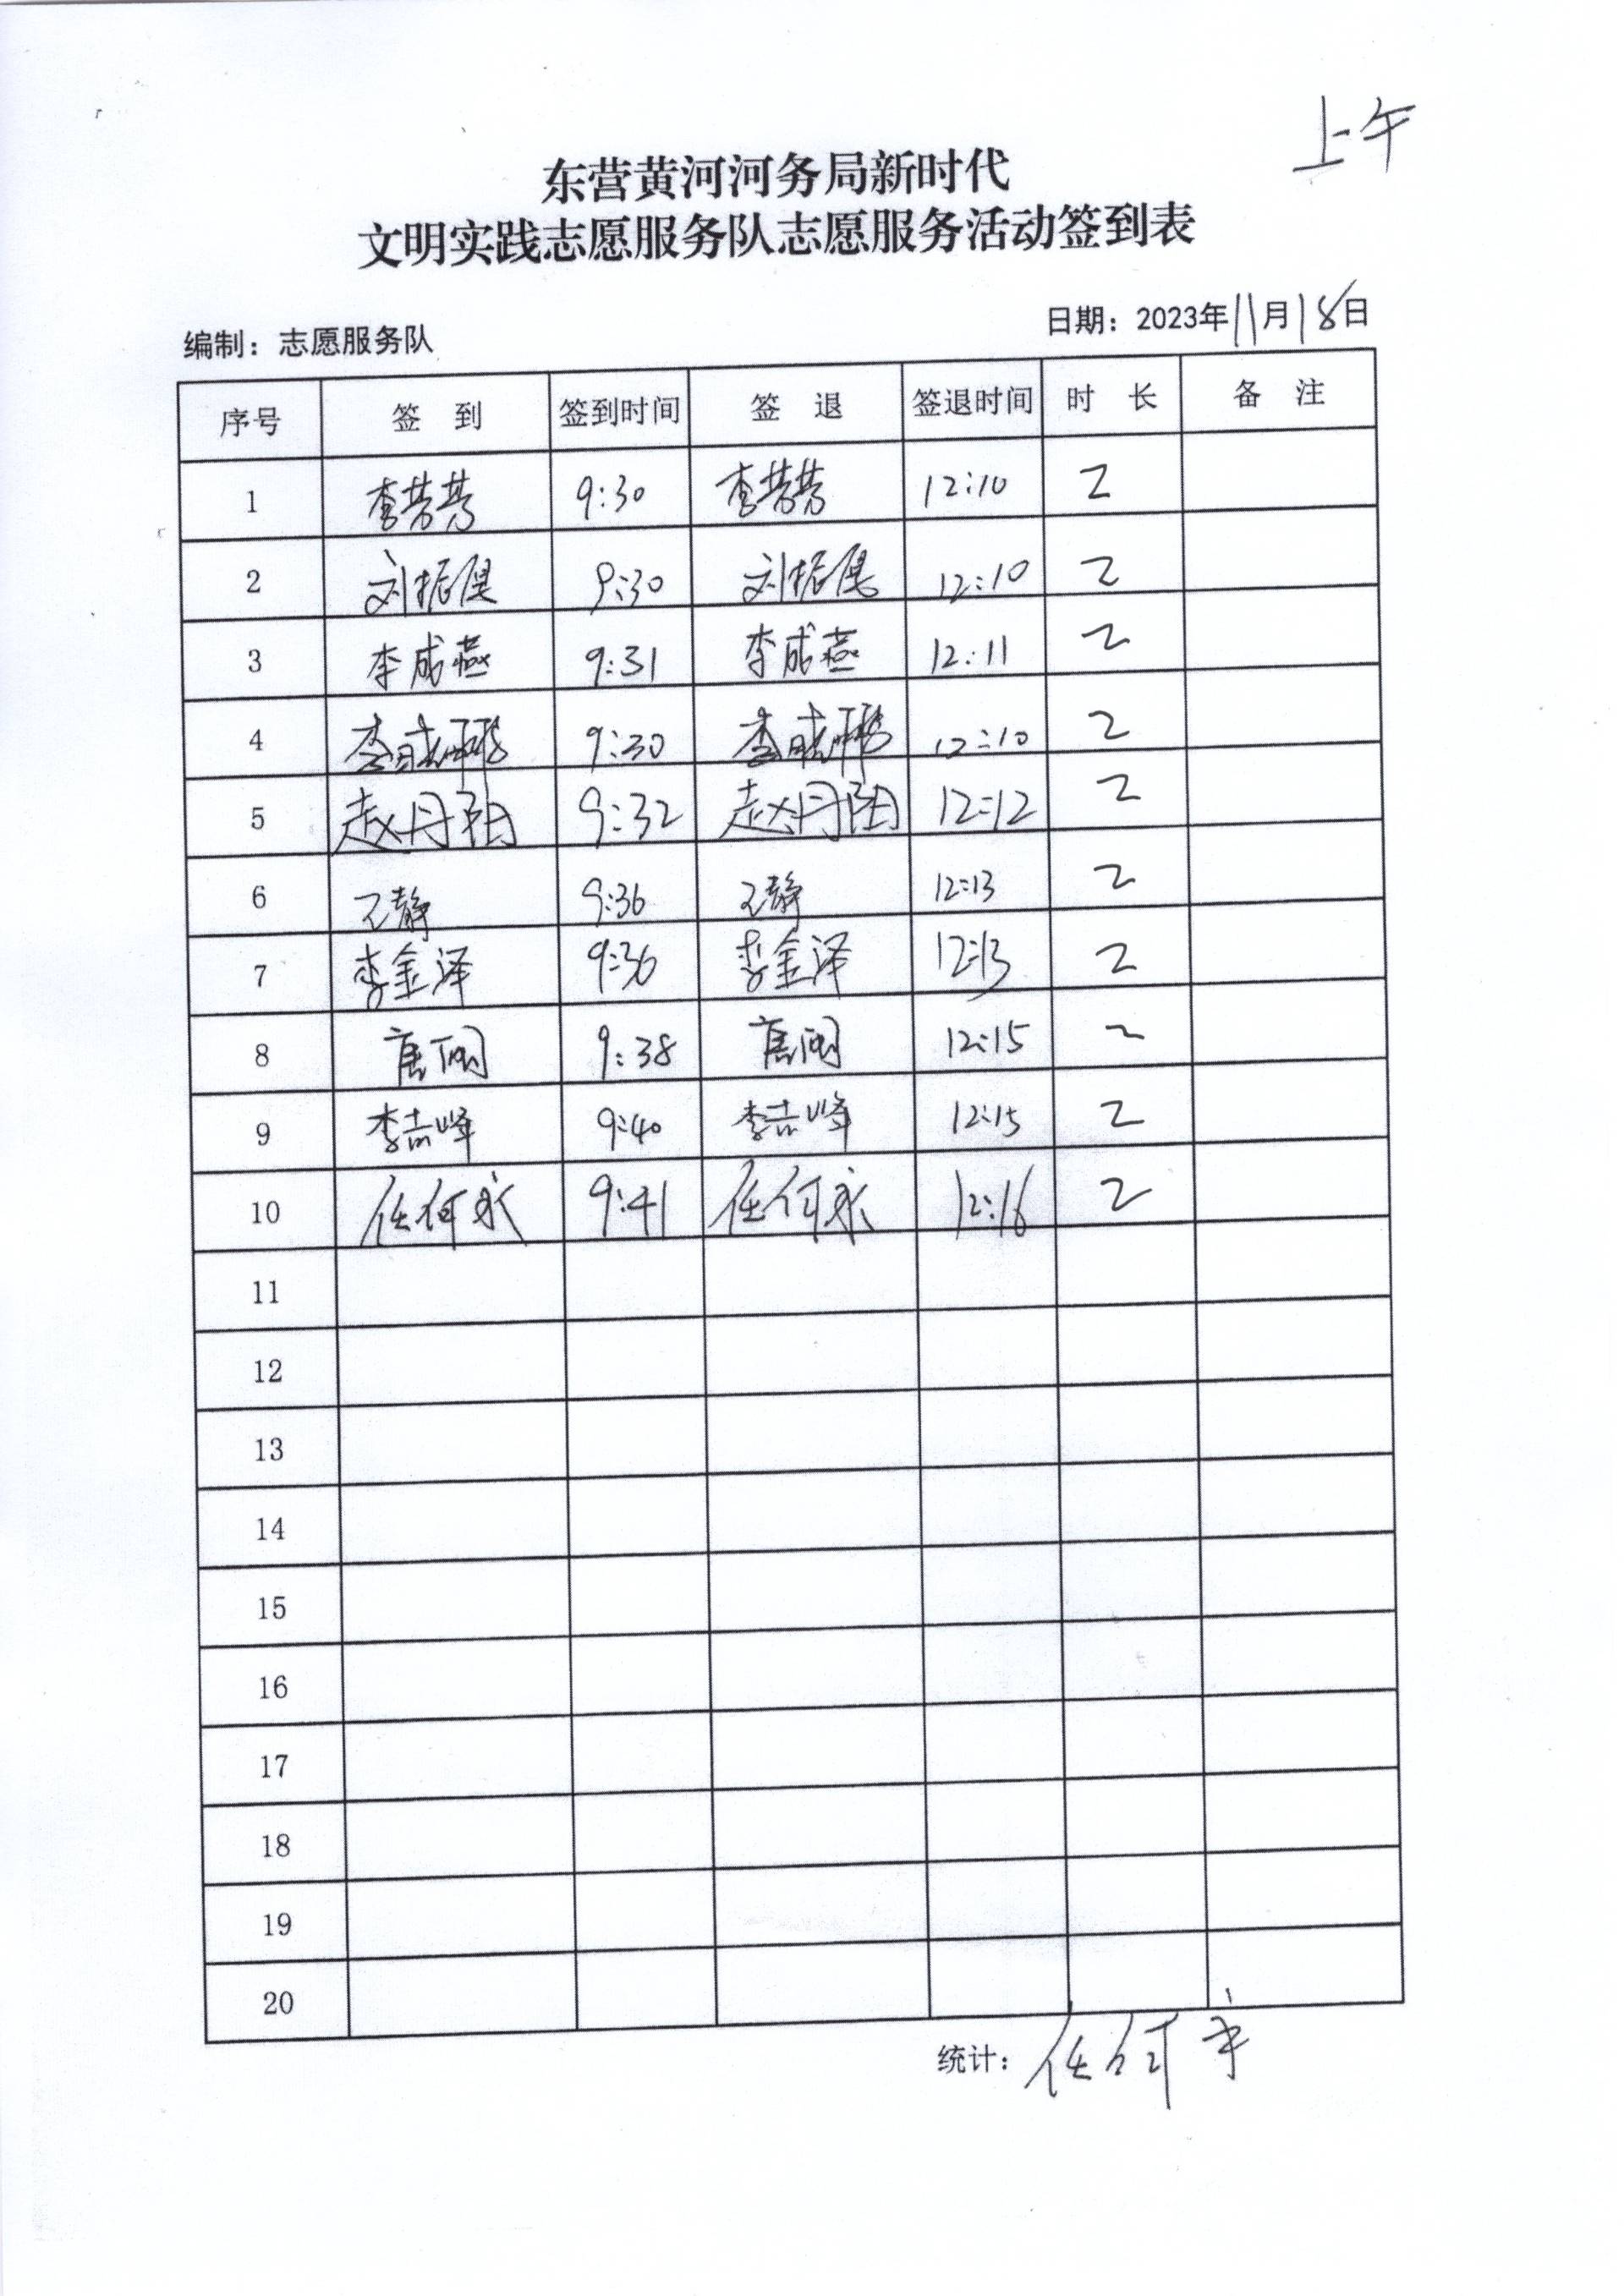 上午
东营黄河河务局新时代
文明实践志愿服务队志愿服务活动签到表
编制：志愿服务队 日期：2023年11月18日
序号 签 到 签到时间 签 退 签退时间 时 长 备 注
1 李芳芳 9:30 李芳芳 12:10 2
2 刘振 9:30 刘振 12:10 2
3 李成燕 9:31 李成燕 12:11 2
4 李成鹏 9:30 李成鹏 12:10 2
5 赵丹阳 9:32 赵丹阳 12:12 2
6 王静 9:36 王静 12:13 2
7 李金泽 9:36 李金泽 12:13 2
8 唐 9:38 唐 12:15 2
9 李志峰 9:40 李志峰 12:15 2
10 任何永 9:41 任何永 12:16 2
11
12
13
14
15
16
17
18
19
20
统计：任何永